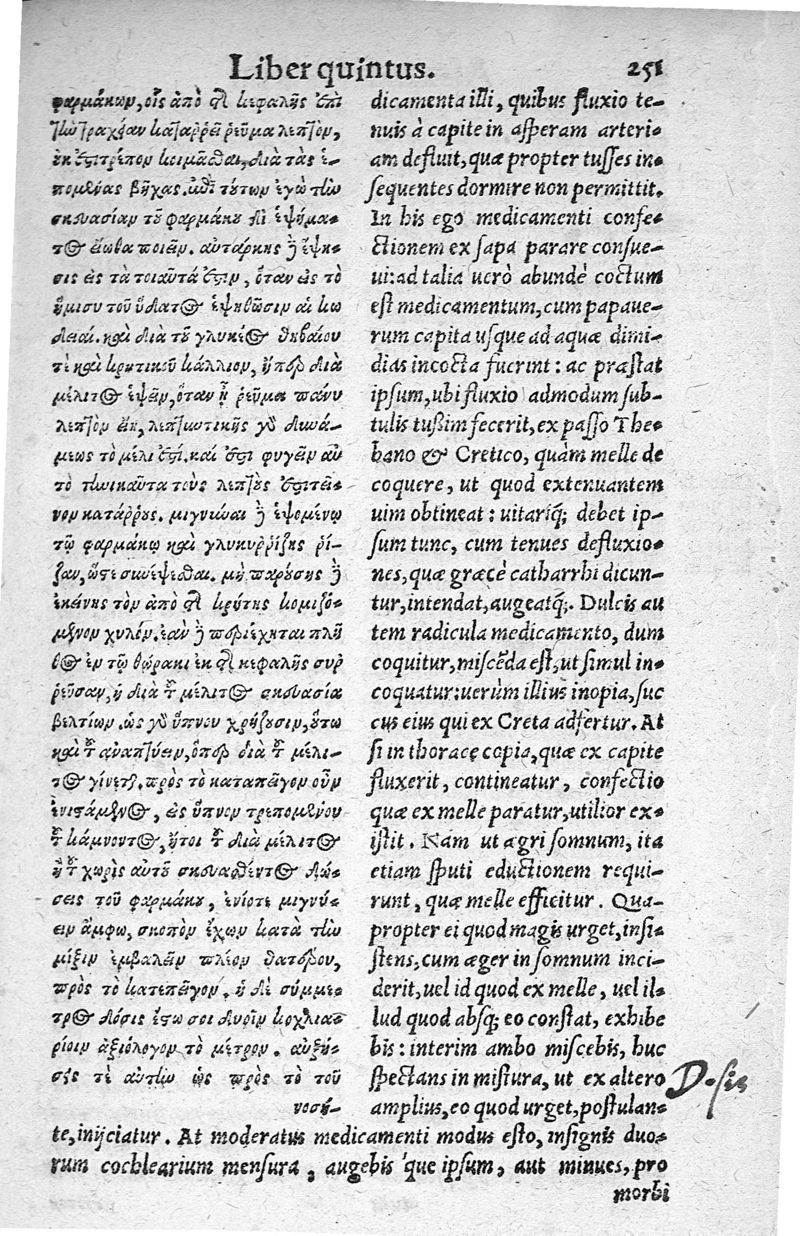 Liber quintus. 251
φαρμάκων, οἷς ἀπὸ τῆς κεφαλῆς ἐπὶ
τὴν τραχεῖαν καταῤῥεῖ ῥεῦμα λεπτὸν,
ἐκ ἐπιτρέπον κοιμᾶσθαι, διὰ τὰς ἑ-
πομένας βῆχας. ἐπὶ τούτων ἐγὼ τὴν
σκευασίαν τοῦ φαρμάκου δι ἑψήμα-
τος εἴωθα ποιεῖν. αὐτάρκης δὲ ἕψη-
σις εἰς τὰ τοιαῦτά ἐστιν, ὅταν εἰς τὸ
ἥμισυ τοῦ ὕδατος ἑψηθῶσιν αἱ κω
δειαί. καὶ διὰ τοῦ γλυκέος θηβαίου
τε καὶ κρητικοῦ κάλλιον, ἤπερ διὰ
μέλιτος ἑψεῖν, ὅταν ῥεῦμα πάνυ
λεπτὸν λεπτυντικῆς γὰρ δυνά-
μεως τὸ μέλι ἐστί. καί ἐστι φυγεῖν αὐ
τὸ τηνικαῦτα τοὺς λεπτοὺς ἐπιτεῖ-
νον κατάῤῥους. μιγνύναι δὲ ἑψομένῳ
τῷ φαρμάκῳ καὶ γλυκυῤῥίζης ῥί-
ζαν, ὥστε συνέψεσθαι. μὴ παρούσης δὲ
ἐκείνης τὸν ἀπὸ τῆς κρήτης κομιζό-
μενον χυλόν. ἐὰν δὲ περιέχηται πλῆ
θος ἐν τῷ θώρακι ἐκ τῆς κεφαλῆς συῤ
ῥεῦσαν, ἡ διὰ τοῦ μέλιτος σκευασία
βελτίων. ὡς γὰρ ὕπνου χρῄζουσιν, οὕτω
καὶ τοῦ ἀναπτύειν, ὅπερ διὰ τοῦ μέλι-
τος γίνεται. πρὸς τὸ κατεπεῖγον οὖν
ἐνιστάμενος, εἰς ὕπνον τρεπομένου
τοῦ κάμνοντος, ἤτοι τοῦ διὰ μέλιτος
ἢ τοῦ χωρὶς αὐτοῦ σκευασθέντος δώ-
σεις τοῦ φαρμάκου, ἐνίοτε μιγνύ-
ειν ἄμφω, σκοπὸν ἔχων κατὰ τὴν
μίξιν ἐμβαλεῖν πλέον θατέρου,
πρὸς τὸ κατεπεῖγον. ἡ δὲ σύμμε-
τρος δόσις ἔστω σοι δυοῖν κοχλια-
ρίοιν ἀξιόλογον τὸ μέτρον. αὐξή-
σεις τε αὐτὴν ὡς πρὸς τὸ τοῦ
νοσή-
dicamenta illi, quibus fluxio te-
nuis à capite in asperam arteri-
am defluit, quæ propter tusses in-
sequentes dormire non permittit.
In his ego medicamenti confe-
ctionem ex sapa parare consue-
ui: ad talia uerò abundè coctum
est medicamentum, cum papaue-
rum capita usque ad aquæ dimi-
dias incocta fuerint: ac præstat
ipsum, ubi fluxio admodum sub-
tulis tussim fecerit, ex passo The-
bano & Cretico, quàm melle de
coquere, ut quod extenuantem
uim obtineat: uitariq; debet ip-
sum tunc, cum tenues defluxio-
nes, quæ græcè catharrhi dicun-
tur, intendat, augeatq;. Dulcis au
tem radicula medicamento, dum
coquitur, miscẽda est, ut simul in-
coquatur: uerùm illius inopia, suc
cus eius qui ex Creta adfertur. At
si in thorace copia, quæ ex capite
fluxerit, contineatur, confectio
quæ ex melle paratur, utilior ex-
istit. Nam ut ægri somnum, ita
etiam sputi eductionem requi-
runt, quæ melle efficitur. Qua-
propter ei quod magis urget, insi-
stens, cum æger in somnum inci-
derit, uel id quod ex melle, uel il-
lud quod absq; eo constat, exhibe
bis: interim ambo miscebis, huc
spectans in mistura, ut ex altero
amplius, eo quod urget, postulan-
Dosis
te, inijciatur. At moderatus medicamenti modus esto, insignis duo-
rum cochlearium mensura, augebis que ipsum, aut minues, pro
morbi